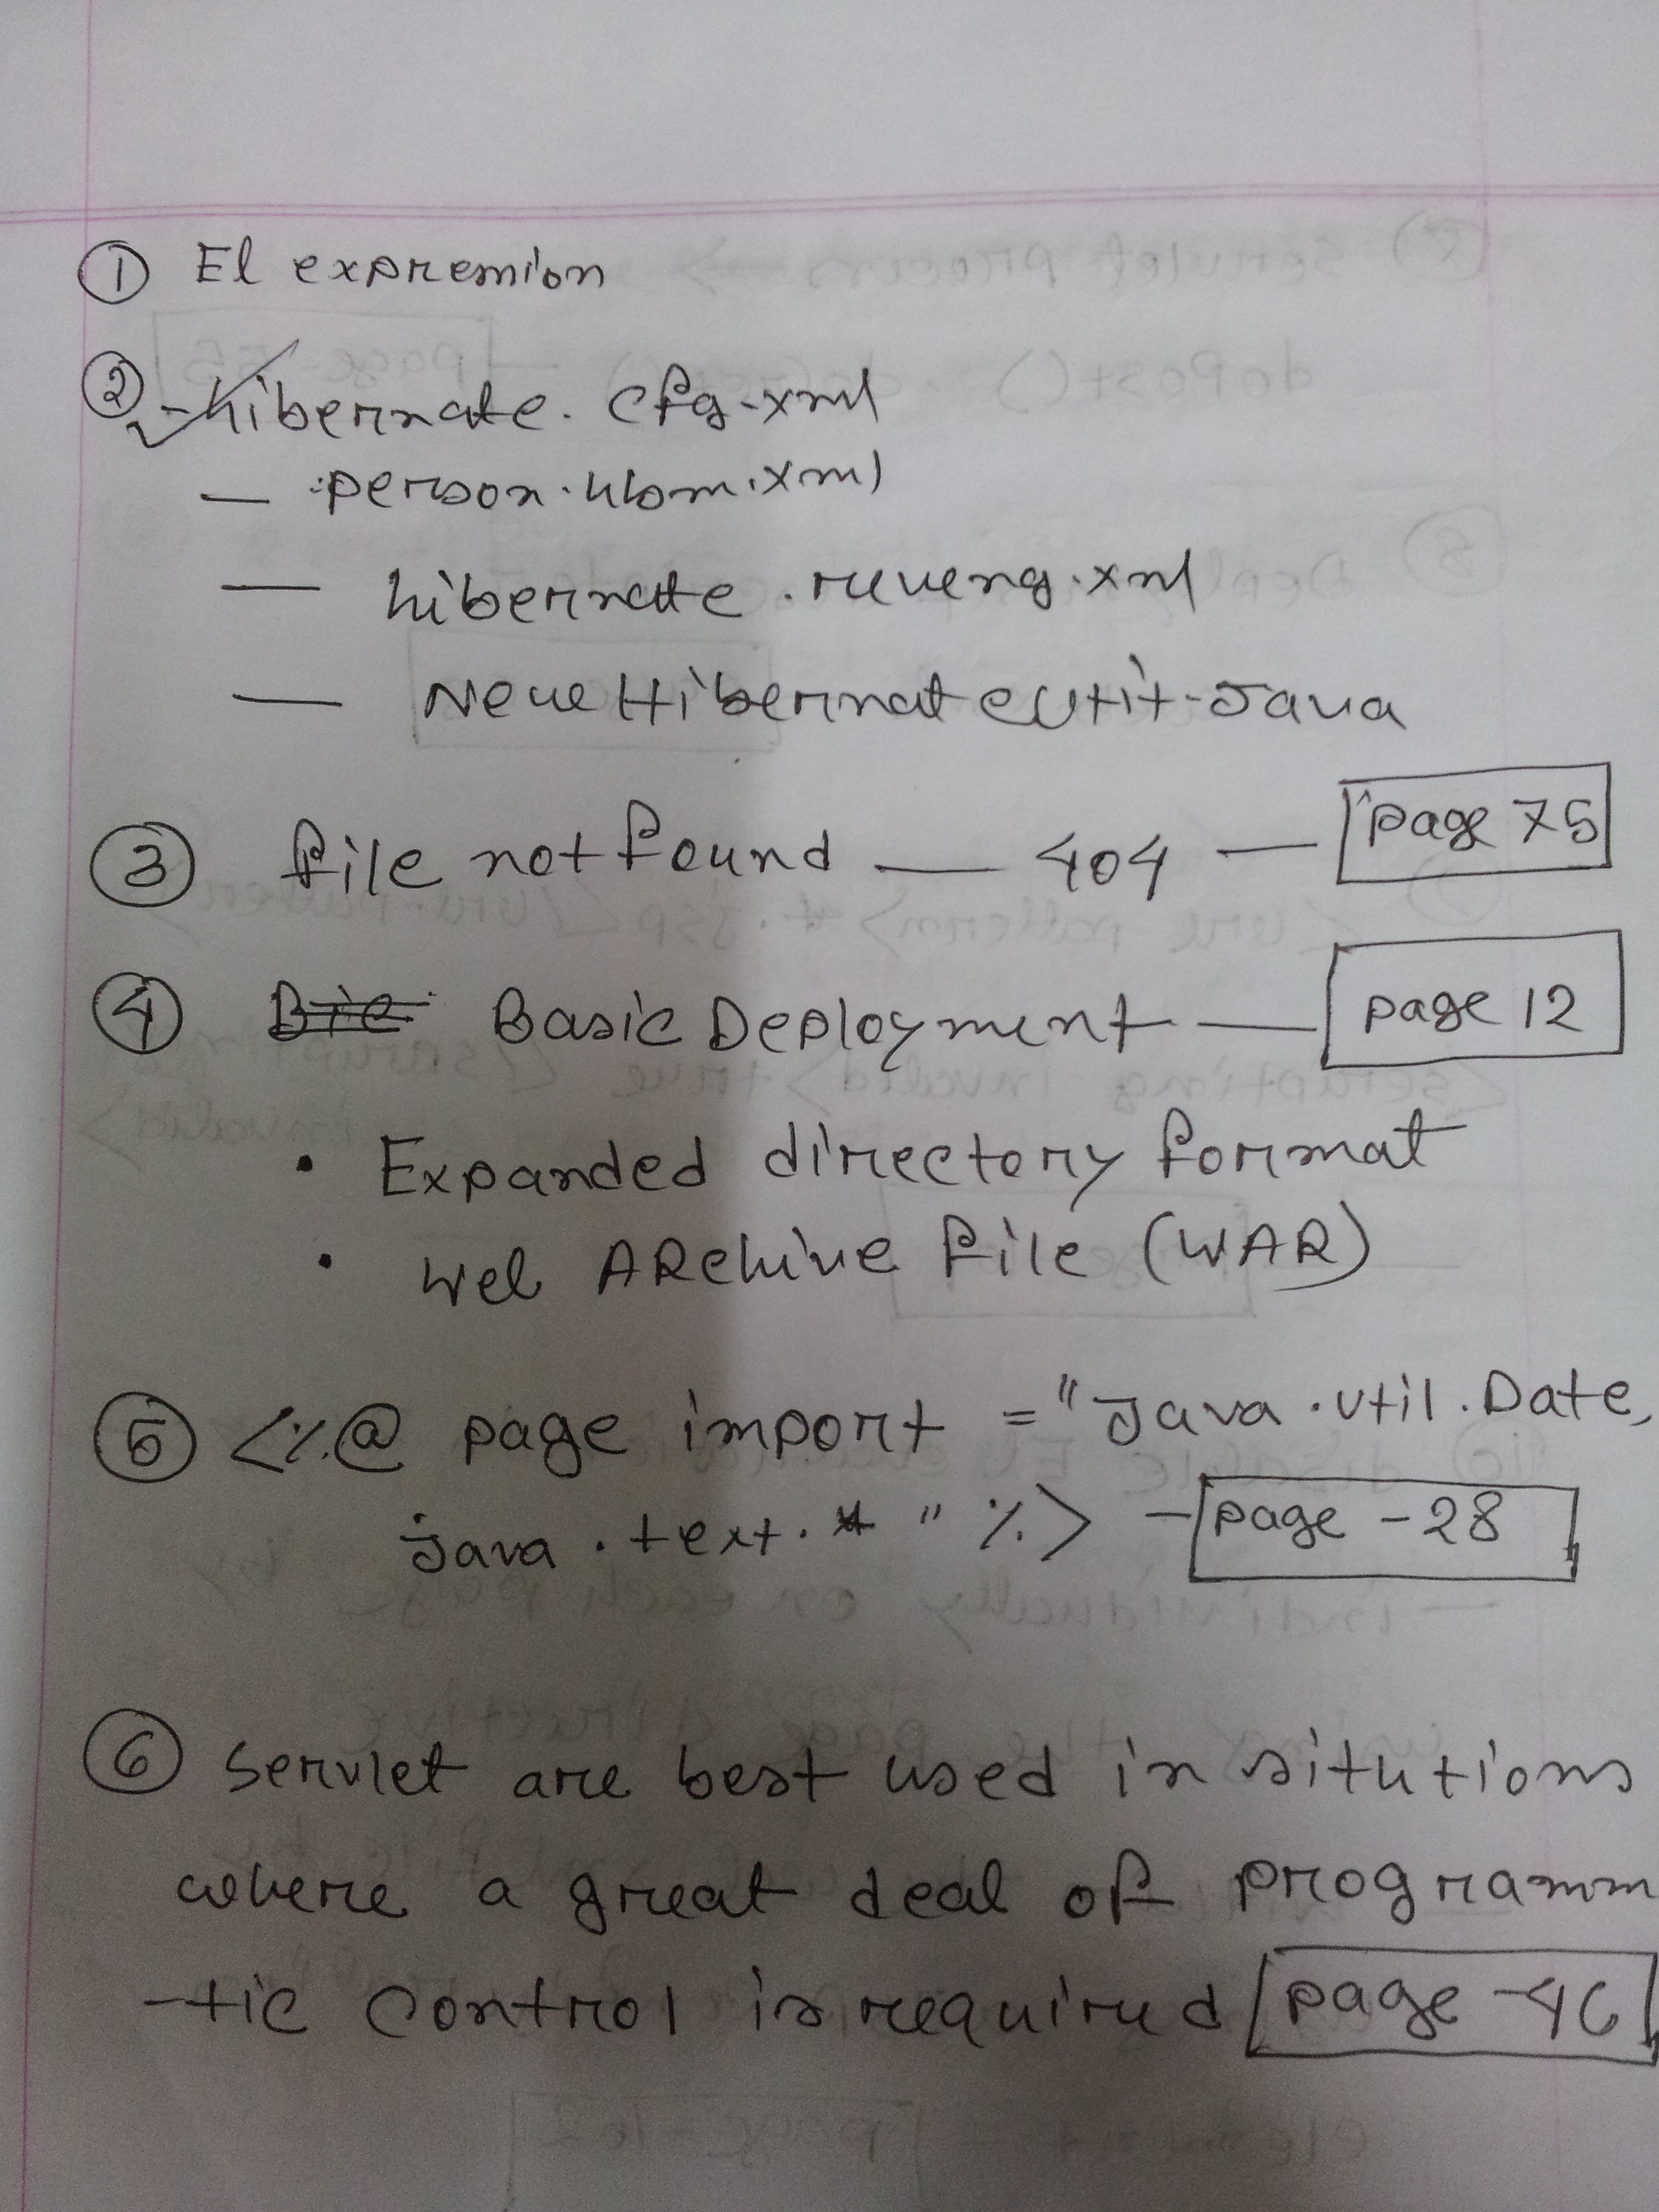 ① El expression
② - hibernate.cfg.xml
— person.hbm.xml
— hibernate.reveng.xml
— NewHibernateUtil.Java
③ file not found — 404 — page 75
④ Basic Deployment — page 12
• Expanded directory format
• Web ARchive file (WAR)
⑤ <%@ page import = "Java.util.Date,
java.text.* " %> - page - 28
⑥ Servlet are best used in situtions
where a great deal of programm
-tic control is required page -46